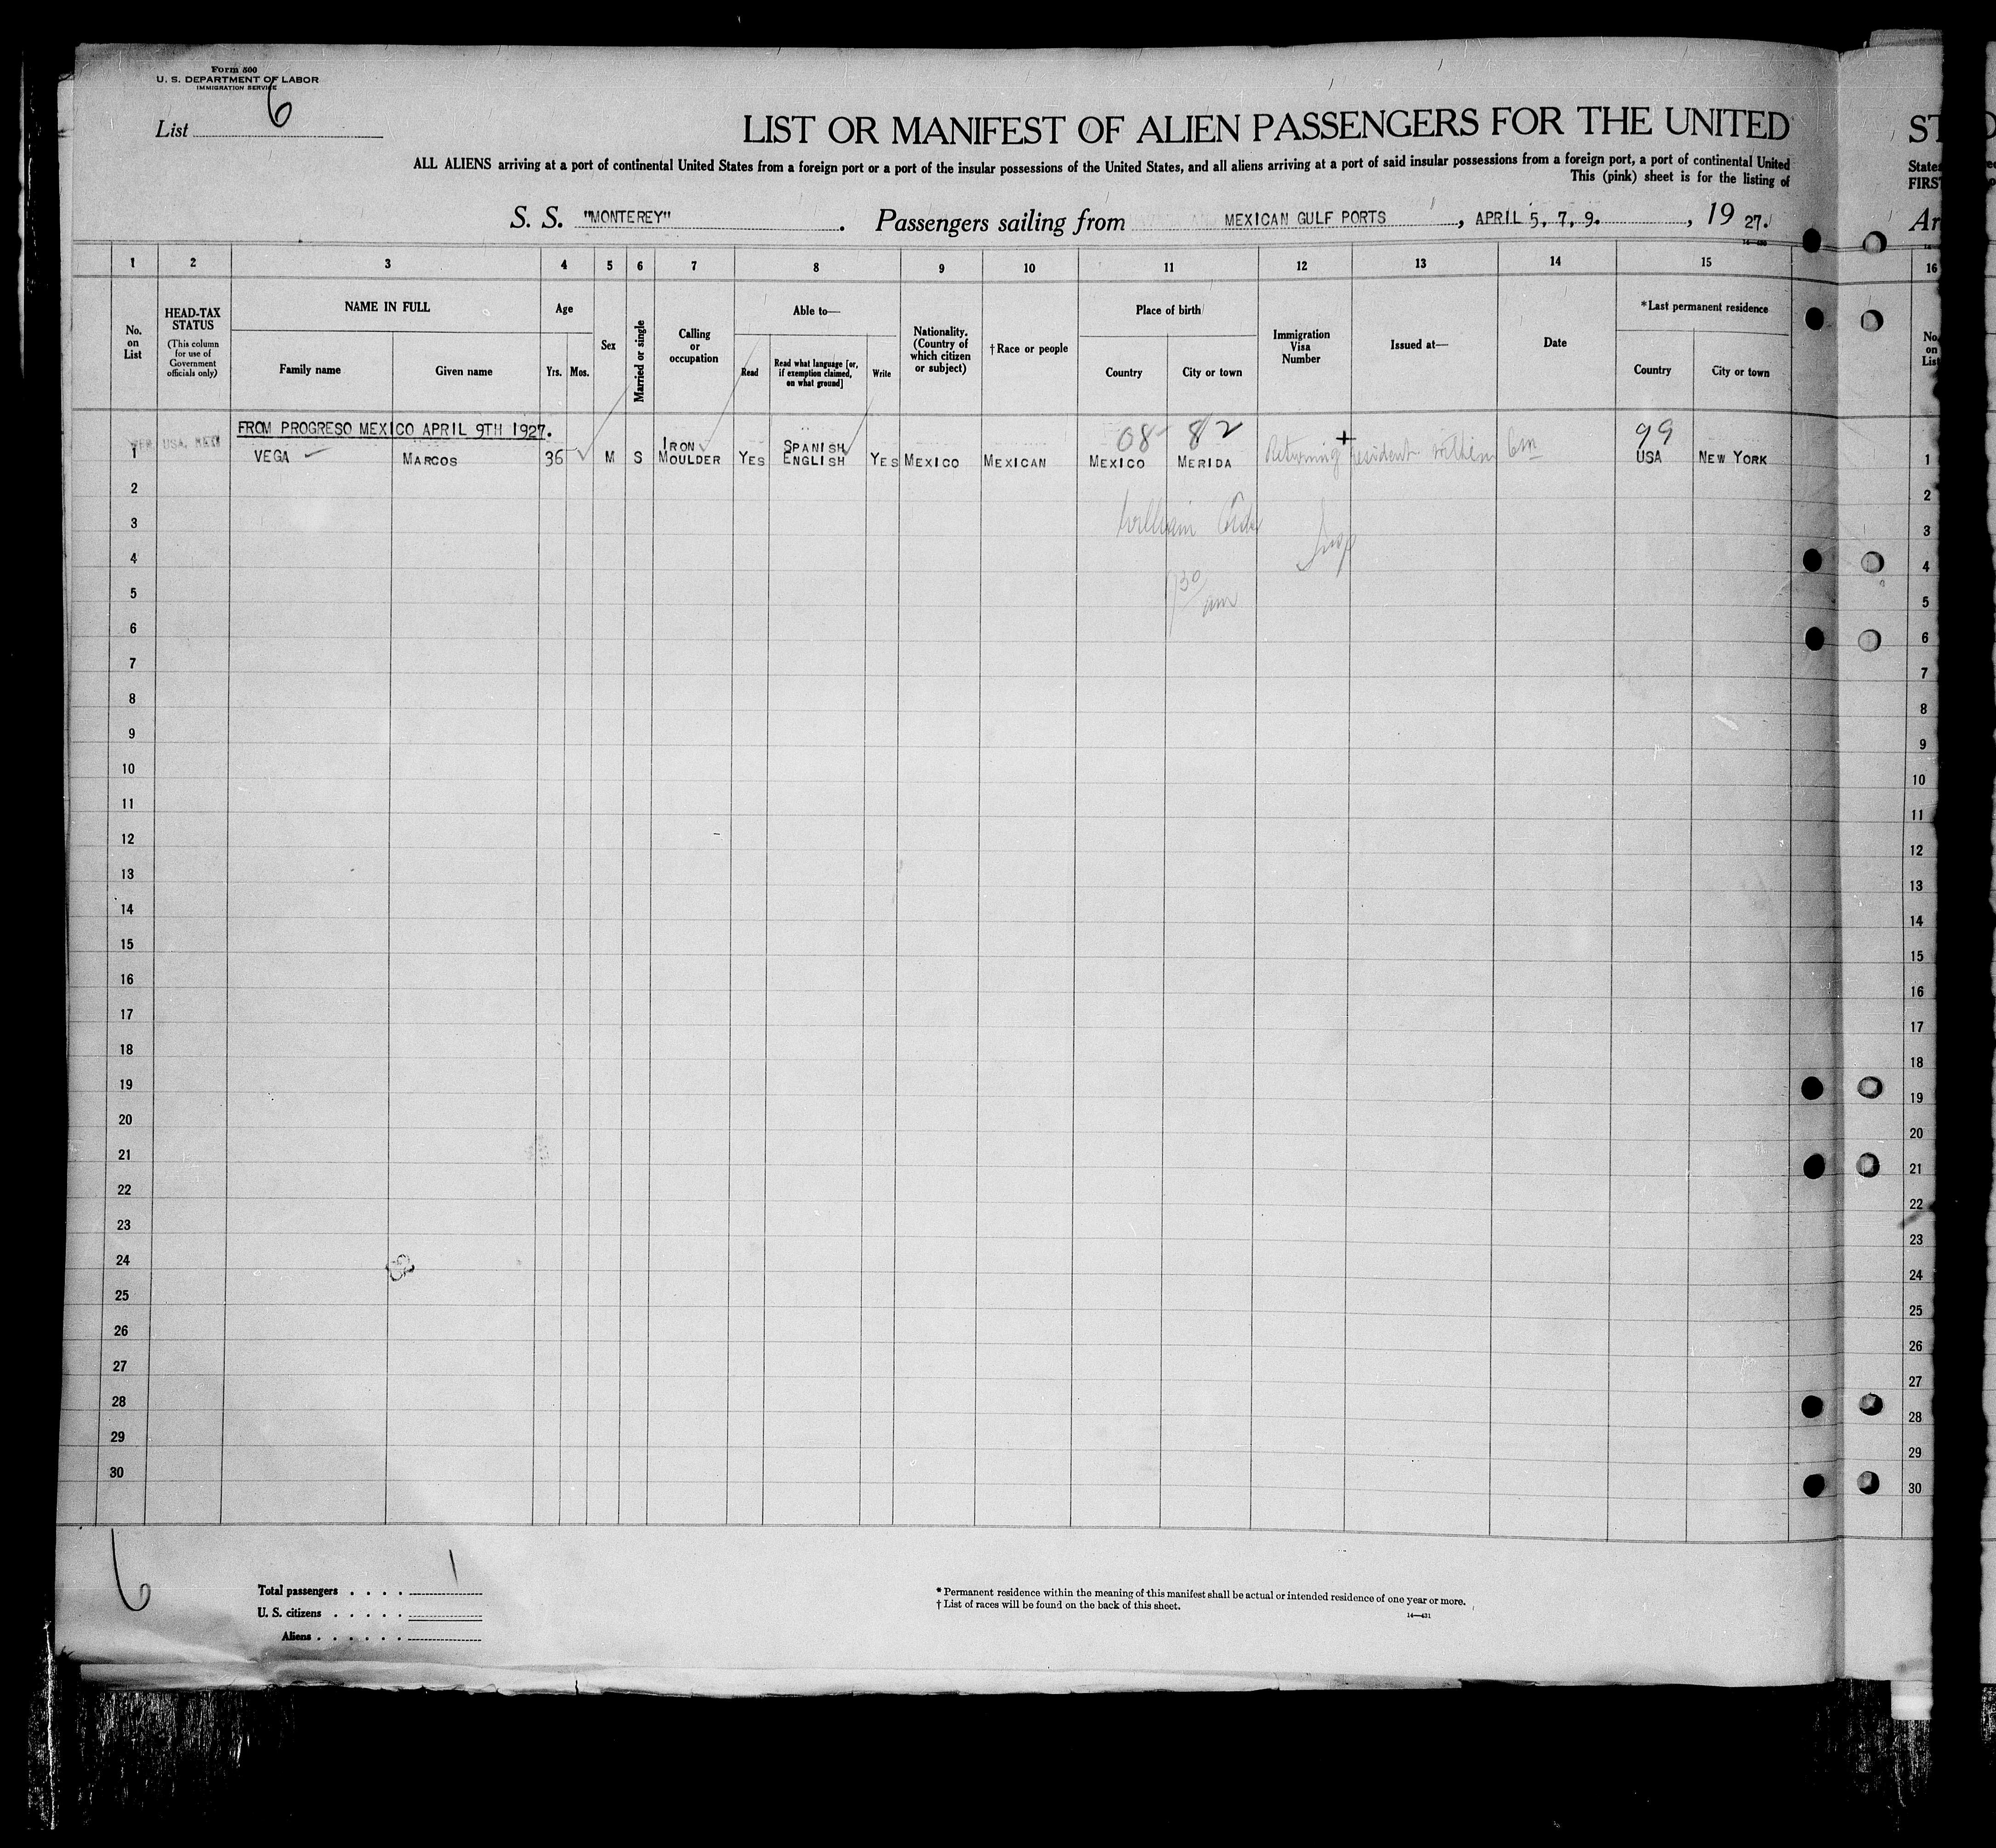 Form 500
U. S. DEPARTMENT OF LABOR
IMMIGRATION SERVICE
List 6
LIST OR MANIFEST OF ALIEN PASSENGERS FOR THE UNITED
ALL ALIENS arriving at a port of continental United States from a foreign port or a port of the insular possessions of the United States, and all aliens arriving at a port of said insular possessions from a foreign port, a port of continental United
This (pink) sheet is for the listing of
S. S. "MONTEREY". Passengers sailing from MEXICAN GULF PORTS, APRIL 5, 7, 9., 19 27.
1 2 3 4 5 6 7 8 9 10 11 12 13 14 15 16
No. on List
HEAD-TAX STATUS (This column for use of Government officials only)
NAME IN FULL
Family name Given name
Age
Yrs. Mos.
Sex
Married or single
Calling or occupation
Able to—
Read
Read what language [or, if exemption claimed, on what ground]
Write
Nationality. (Country of which citizen or subject)
†Race or people
Place of birth
Country City or town
Immigration Visa Number
Issued at—
Date
*Last permanent residence
Country City or town
FROM PROGRESO MEXICO APRIL 9TH 1927.
08 82 99
1 VEGA MARCOS 36 M S IRON MOULDER YES SPANISH ENGLISH YES MEXICO MEXICAN MEXICO MERIDA Returning resident within 6m USA NEW YORK 1
2 2
3 William Insp 3
4 4
5 730 am 5
6 6
7 7
8 8
9 9
10 10
11 11
12 12
13 13
14 14
15 15
16 16
17 17
18 18
19 19
20 20
21 21
22 22
23 23
24 24
25 25
26 26
27 27
28 28
29 29
30 30
6
Total passengers . . . . 1
U. S. citizens . . . . .
Aliens . . . . . .
* Permanent residence within the meaning of this manifest shall be actual or intended residence of one year or more.
† List of races will be found on the back of this sheet.
14—431